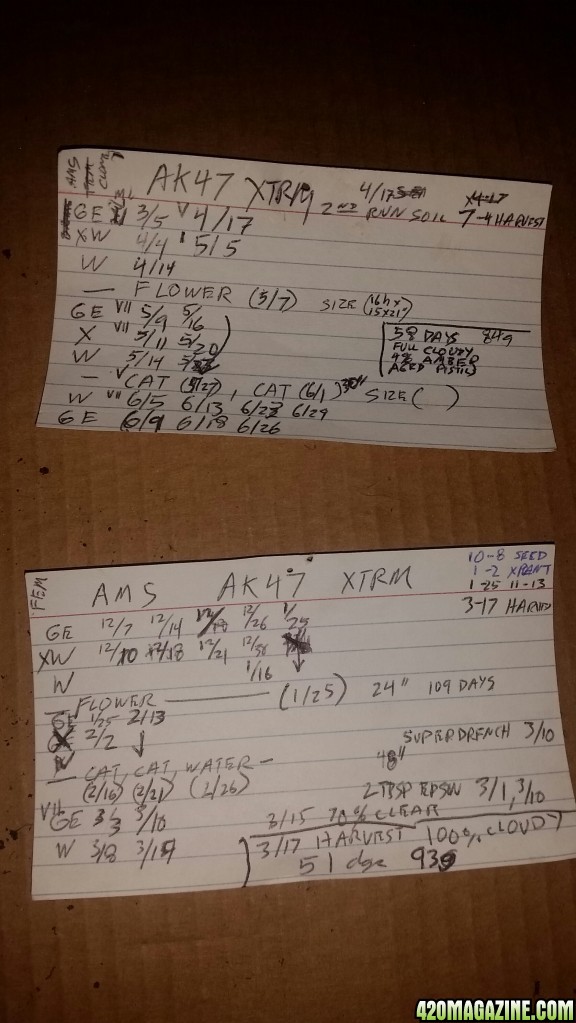 AMS
AK47 XTRM 4/17
2ND RUN SOIL 7-4 HARVEST
GE 3/5 V 4/17
XW 4/4 5/5
W 4/14
— FLOWER (5/7) SIZE (16h x 15x21")
GE VII 5/9 5/16
X VII 5/11 5/20
W 5/14
58 DAYS 84g
FULL CLOUDY
AMBER
— CAT (5/27), CAT (6/1) SIZE ( )
W VII 6/5 6/13 6/22 6/29
GE 6/9 6/18 6/26
FEM
AMS AK47 XTRM
10-8 SEED
1-2 XPLANT
1-25 11-13
3-17 HARVEST
GE 12/7 12/14 12/26 1/25
XW 12/10 12/18 12/21 12/30
W 1/16
— FLOWER — (1/25) 24" 109 DAYS
GE 1/25 2/13
X 2/2
SUPERDRENCH 3/10
48"
— CAT, CAT, WATER —
(2/16) (2/21) (2/26)
2 TBSP EPSOM 3/1, 3/10
VII GE 3/3 3/10
3/15 70% CLEAR
W 3/8 3/15
3/17 HARVEST 100% CLOUDY
51 days 93g
420MAGAZINE.COM